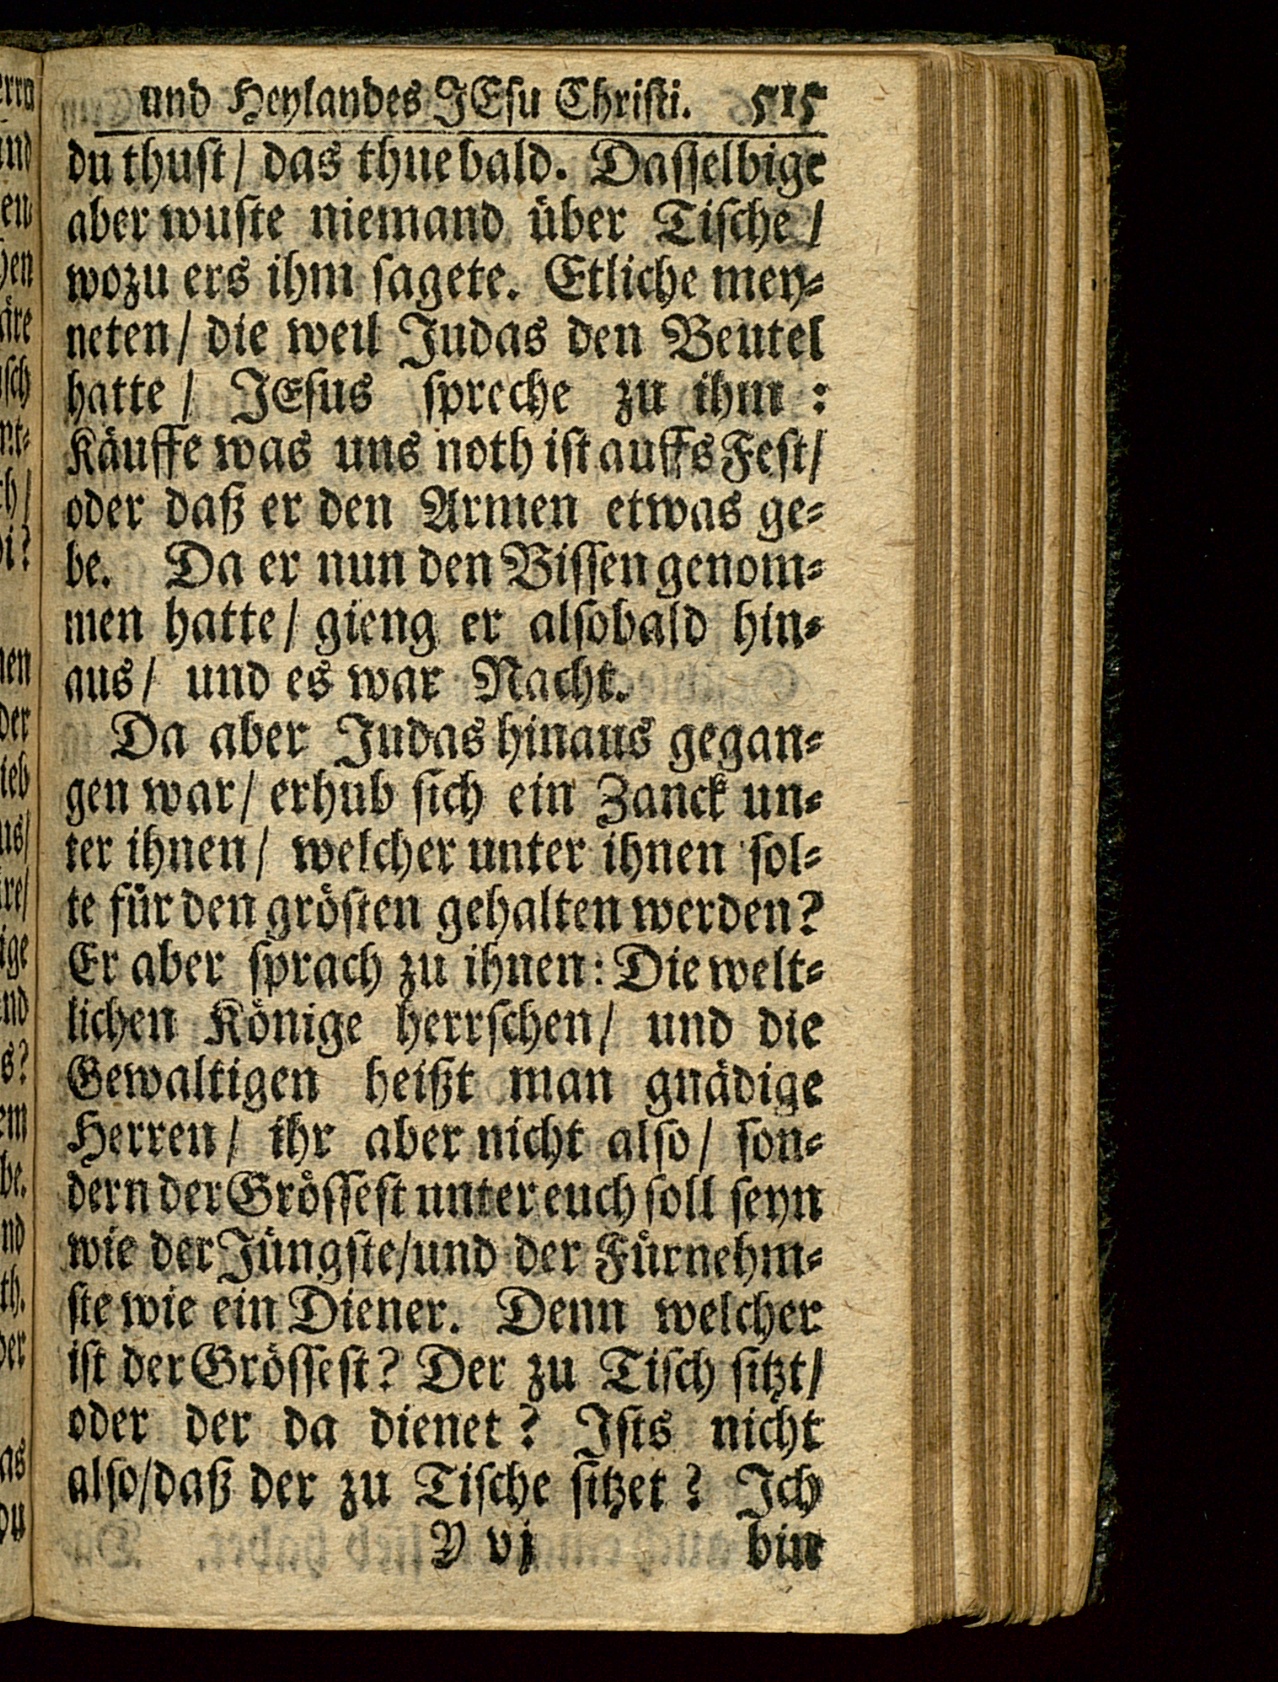 und Heylandes JEsu Christi. 515
du thust/ das thue bald. Dasselbige
aber wuste niemand über Tische/
wozu ers ihm sagete. Etliche mey-
neten/ die weil Judas den Beutel
hatte/ JEsus spreche zu ihm:
Käuffe was uns noth ist auffs Fest/
oder daß er den Armen etwas ge-
be. Da er nun den Bissen genom-
men hatte/ gieng er alsobald hin-
aus/ und es war Nacht.
Da aber Judas hinaus gegan-
gen war/ erhub sich ein Zanck un-
ter ihnen/ welcher unter ihnen sol-
te für den grösten gehalten werden?
Er aber sprach zu ihnen: Die welt-
lichen Könige herrschen/ und die
Gewaltigen heißt man gnädige
Herren/ ihr aber nicht also/ son-
dern der Grössest unter euch soll seyn
wie der Jüngste/und der Fürnehm-
ste wie ein Diener. Denn welcher
ist der Grössest? Der zu Tisch sitzt/
oder der da dienet? Ists nicht
also/daß der zu Tische sitzet? Ich
Y vj bin